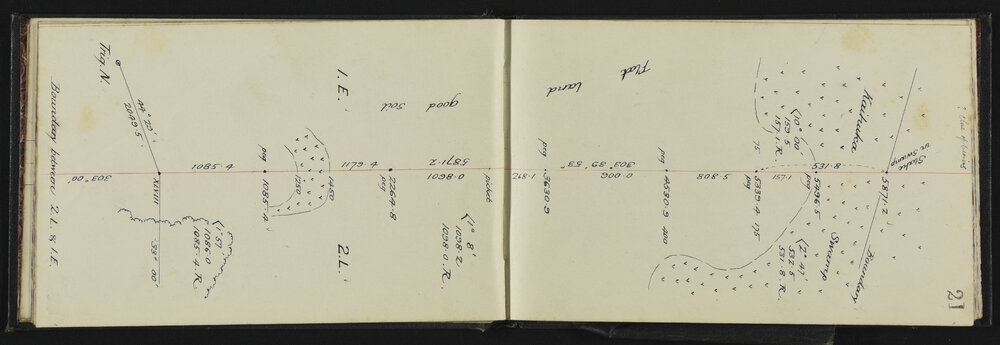 21
Boundary between 2.L. & 1.E.
Trig. N.
44° 29'
2049.5
303° 00'
XLVIII
33° 00'
1085.4
(1° 57'
1086.0
1085.4.R.
peg
1085.4
1250
1450
1.E.
2.L.
1179.4
2264.8
peg
good soil
5871.2
1098.0
picket
(1° 8'
1098.2
1098.0.R.
268.1
peg
3630.9
Flat
land
303° 39' 53"
900.0
peg
4530.9
400
808.5
75
5339.4
175
157.1
(10° 00'
159.5
157.1.R
Kaihukea
Swamp
135.8
5496.5
(2° 47'
532.5
531.8.R.
5871.2
Stake
in Swamp
Boundary